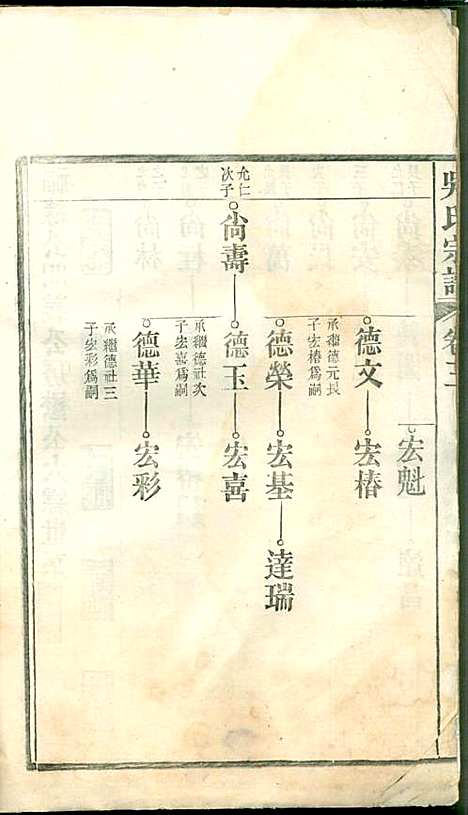 吳氏宗譜
卷十三
宏魁
允仁
次子
尚壽
德文
承繼德元長
子宏椿爲嗣
宏椿
德榮
宏基
達瑞
德玉
承繼德社次
子宏喜爲嗣
宏喜
德華
承繼德社三
子宏彩爲嗣
宏彩